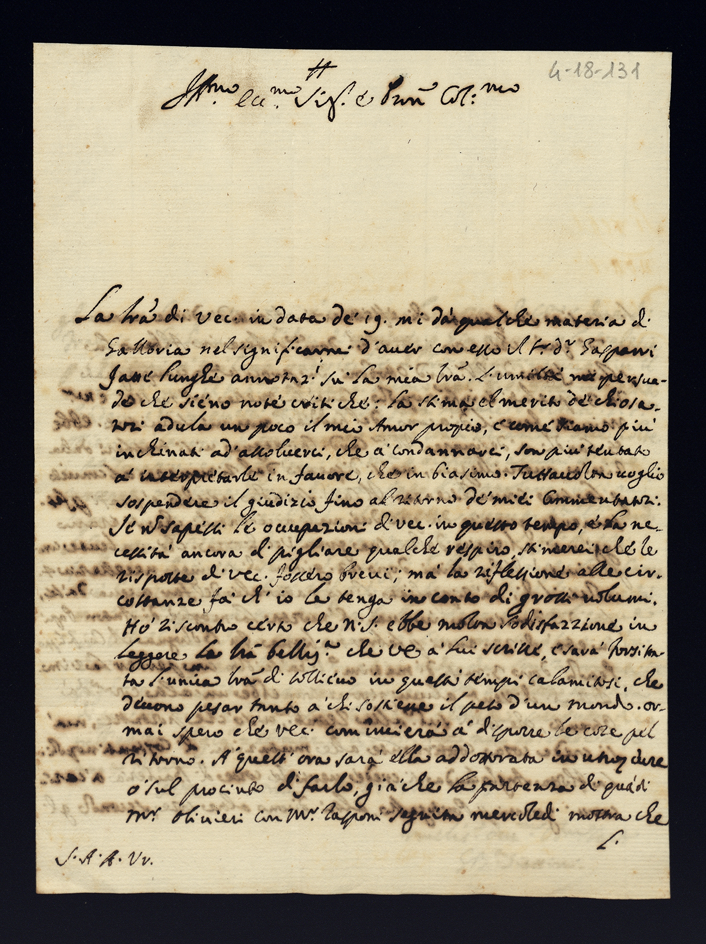 4-18-131
Ill.mo ecc.mo Sig.e e Pron Col:mo
La lrã di Vec. in data de' 19. mi dà qualche materia di
Galloria nel significarmi d'aver con esso il S. d.r Gasparri
fatte lunghe annotaz.i su la mia lrã. L'umiltà mi persua-
de che sieno note critiche: la stima del merito de' chiosa-
tori adula un poco il mio Amor proprio, e come siamo più
inchinati ad'assolverci, che a' condannarci, son più tentato
a' interpretarle in favore, che in biasimo. Tuttavolta voglio
sospendere il giudizio fino al ritorno de' miei Commentatori.
Se nõ sapessi le occupazioni di Vec. in questo tempo, e la ne-
cessità ancora di pigliare qualche respiro, stimerei che le
risposte di Vec. fossero brevi; mà la riflessione alle cir-
costanze fà ch'io le tenga in conto di grossi volumi.
Hò riscontro certo che N.S. ebbe molta sodisfazzione in
leggere la lrã belliss.a che Ve a Lui scrisse, e sarà forsi sta-
ta l'unica lrã di sollievo in questi tempi calamitosi, che
devono pesar tanto a' chi sostiene il peso d'un mondo. or-
mai spero che Vec. comincierà a' disporre le cose pel
ritorno. A' quest'ora sarà ella addottorata in utroq iure
o' sul procinto di farlo, già che la partenza di quà di
Mr. Olivieri con Mr. Rasponi seguita mercoledi mostra che
S. A. A. Vv.